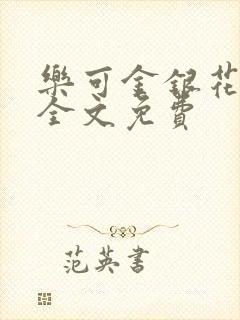 樂可金銀花
全文免費
范英書